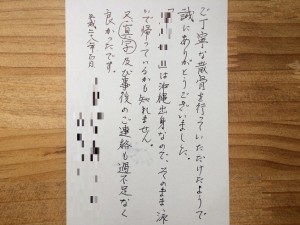 ご丁寧な散骨を行っていただけたようで
誠にありがとうございました。
「　　　」は沖縄出身なので、そのまま泳
いで帰っているかも知れません。
又、写真及び事後のご連絡も過不足なく
良かったです。
平成二八年 月